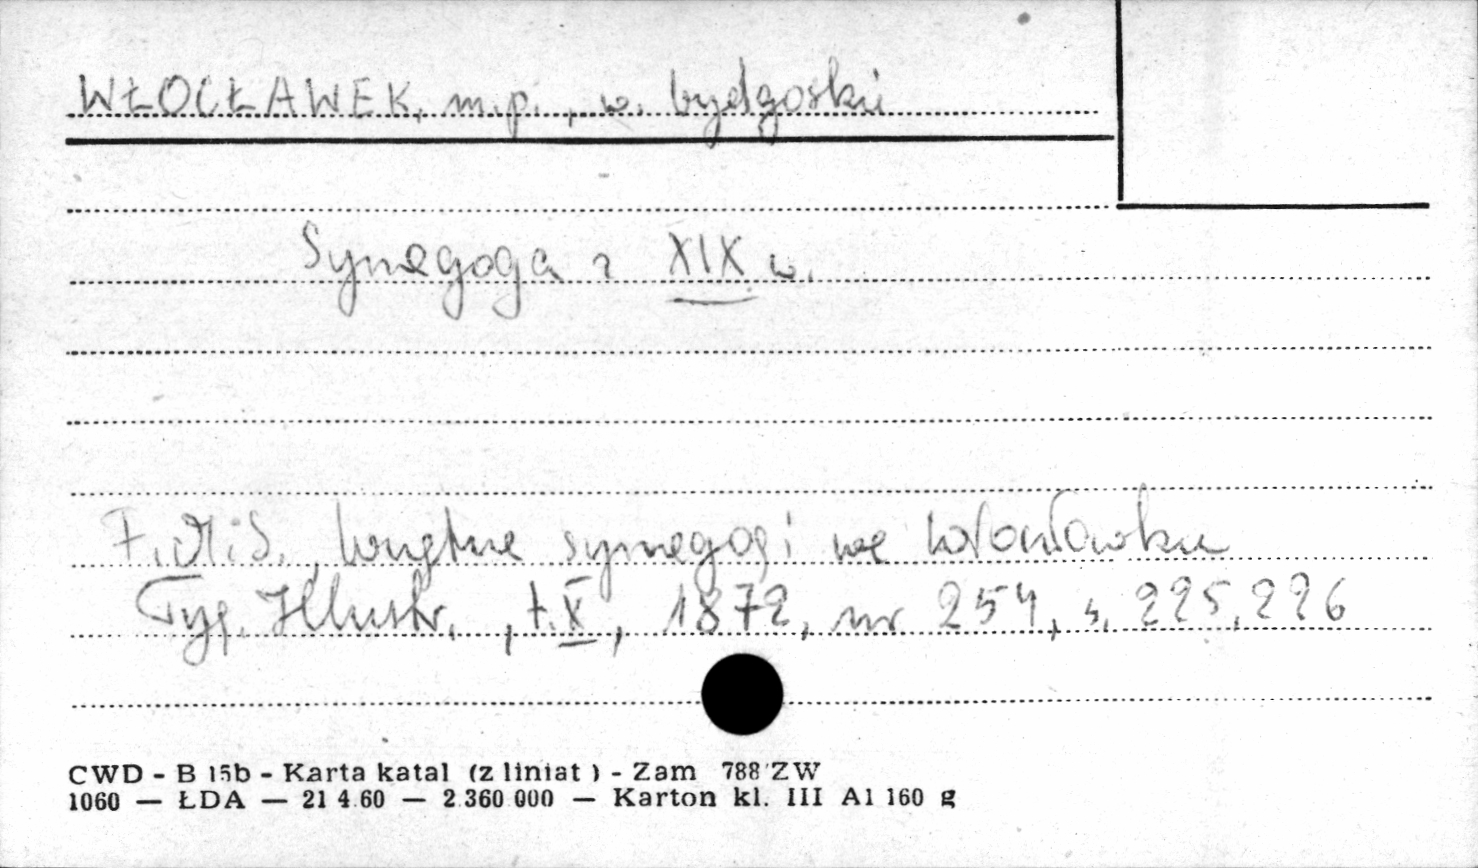 WŁOCŁAWEK, m.p., w. bydgoskie
Synagoga z XIX w.
F.M.S., Wnętrze synagogi we Włocławku
Tyg. Illustr., t. X, 1872, nr 254, s. 225, 226
CWD - B 15b - Karta katal (z liniat) - Zam 788 ZW
1060 — ŁDA — 21 4.60 — 2.360.000 — Karton kl. III A1 160 g